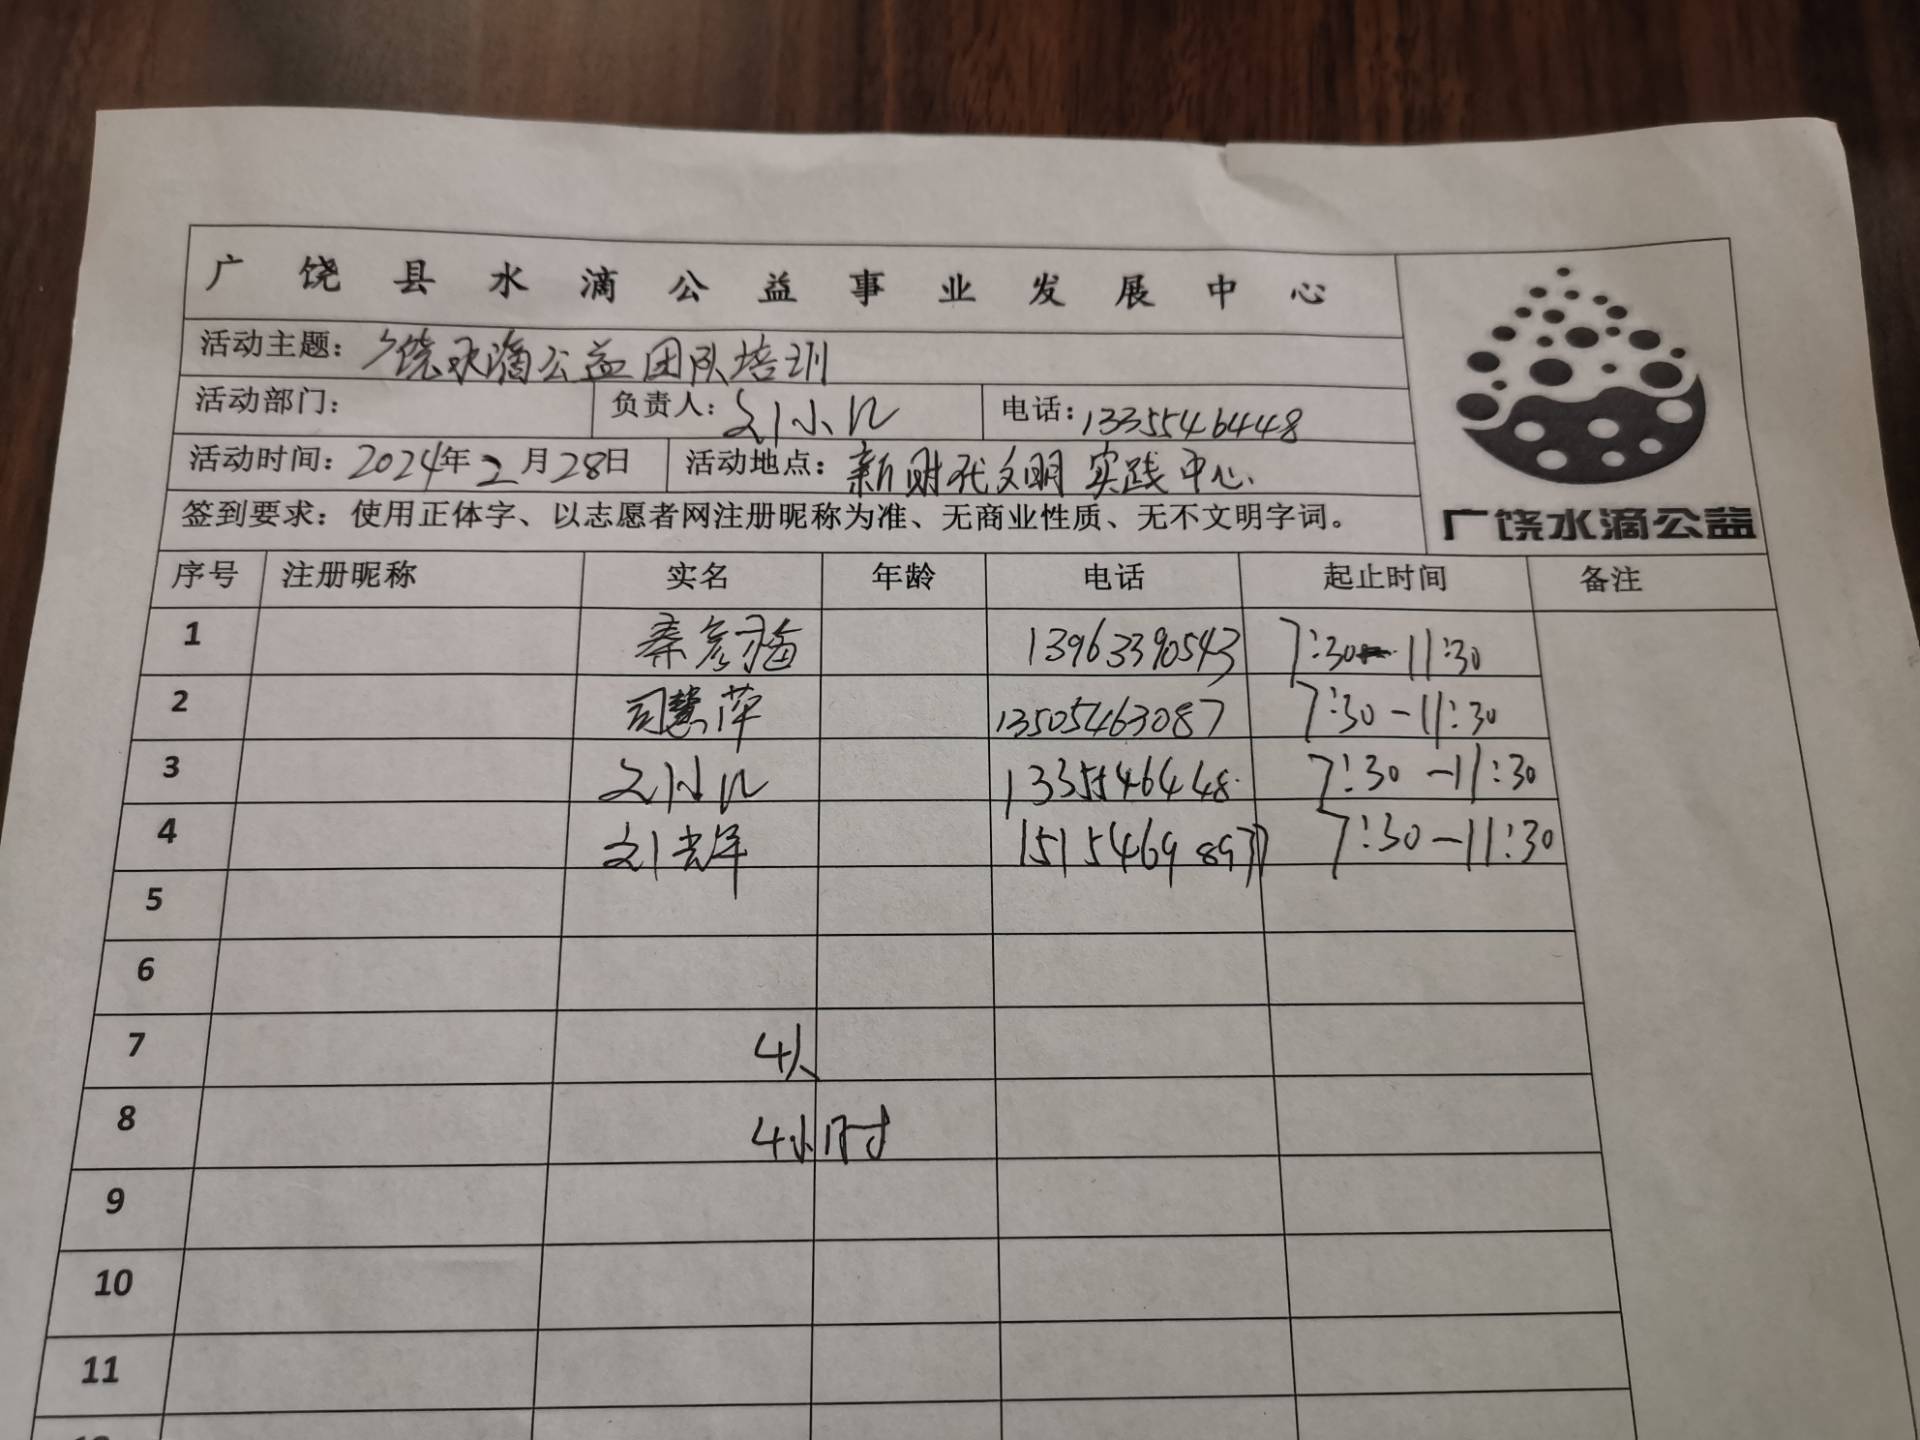 广饶县水滴公益事业发展中心
活动主题：广饶水滴公益团队培训
活动部门： 负责人：刘小儿 电话：13355464448
活动时间：2024年2月28日 活动地点：新时代文明实践中心
签到要求：使用正体字、以志愿者网注册昵称为准、无商业性质、无不文明字词。
广饶水滴公益
序号 注册昵称 实名 年龄 电话 起止时间 备注
1 秦彦海 13963390543 7:30-11:30
2 司慧萍 13505463087 7:30-11:30
3 刘小儿 13355464448 7:30-11:30
4 刘 7:30-11:30
5
6
7 4人
8 4小时
9
10
11